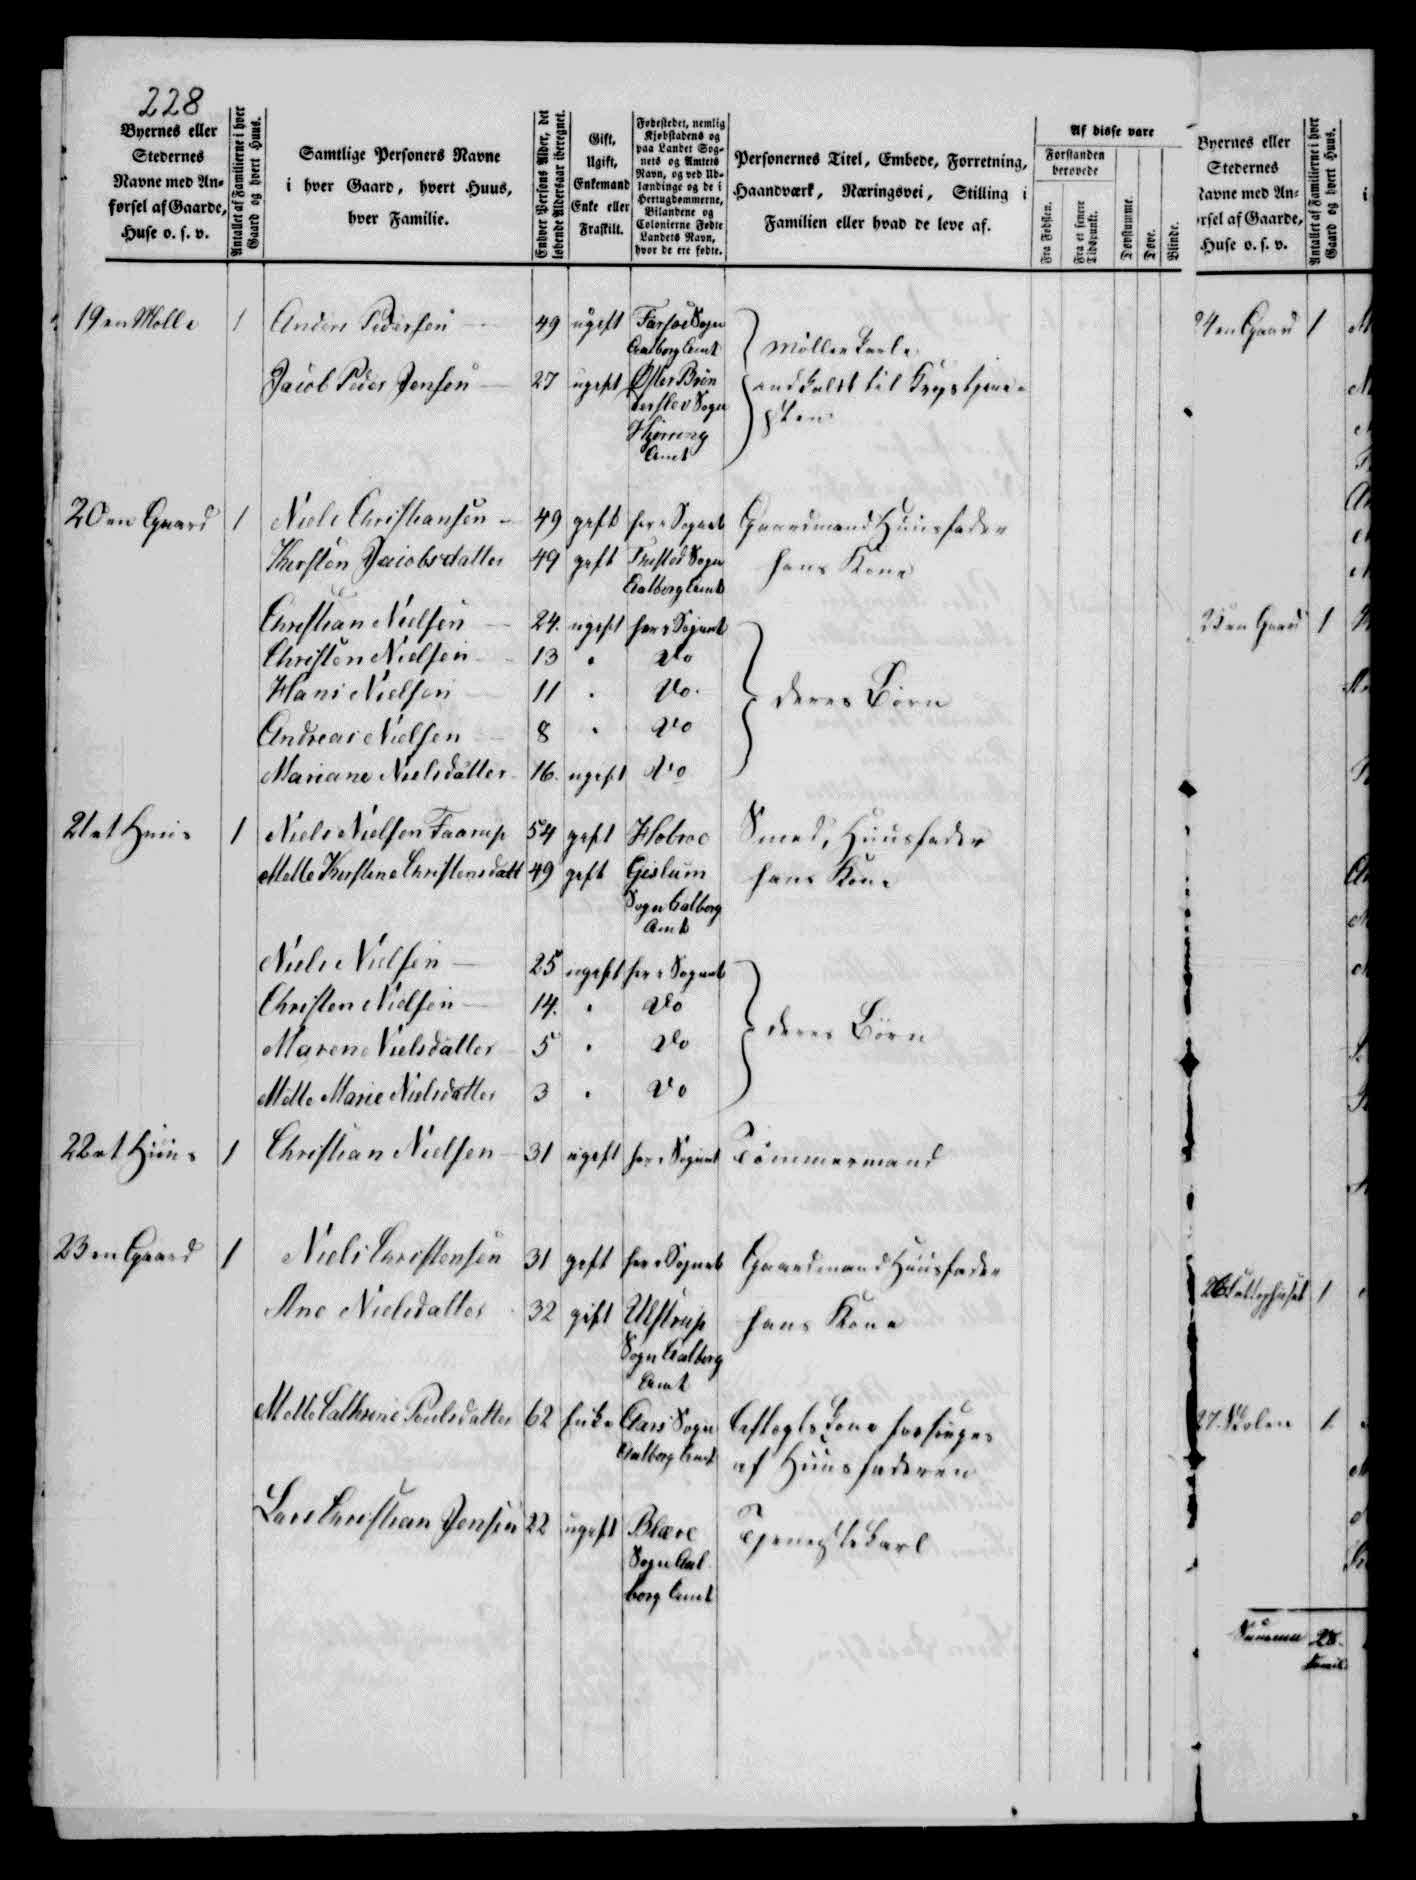 228
Byernes eller
Stedernes
Navne med An-
førsel af Gaarde,
Huse o. s. v.
Antallet af Familierne i hver
Gaard og hvert Huus.
Samtlige Personers Navne
i hver Gaard, hvert Huus,
hver Familie.
Enhver Persons Alder, det
løbende Aldersaar iberegnet.
Gift,
Ugift,
Enkemand
Enke eller
Fraskilt.
Fødestedet, nemlig
Kjøbstadens og
paa Landet Sog-
nets og Amtets
Navn, og ved Ud-
lændinge og de i
Hertugdømmerne,
Bilandene og
Colonierne Fødte
Landets Navn,
hvor de ere fødte.
Personernes Titel, Embede, Forretning,
Haandværk, Næringsvei, Stilling i
Familien eller hvad de leve af.
Af disse vare
Forstanden
berøvede
Fra Fødslen.
Fra et senere
Tidspunkt.
Døvstumme.
Døve.
Blinde.
19 en Mølle 1 Anders Pedersen 49 ugift Farsøe Sogn
Aalborg Amt
Møllerkarle
Jacob Peder Jensen 27 ugift Øster Brøn
derslev Sogn
Hjørring
Amt
20 en Gaard 1 Niels Christiansen 49 gift her i Sognet Gaardmand Huusfader
Kirsten Jacobsdatter 49 gift Sogn hans Kone
Aalborg Amt
Christian Nielsen 24. ugift her i Sognet
Christen Nielsen 13 " Do
Hans Nielsen 11 " Do deres Børn
Andreas Nielsen 8 " Do
Mariane Nielsdatter 16. ugift Do
21 et Huus 1 Niels Nielsen Faarup 54 gift Hobroe Smed, Huusfader
Mette Kirstine Christensdatt 49 gift Gislum hans Kone
Sogn Aalborg
Amt
Niels Nielsen 25 ugift her i Sognet
Christen Nielsen 14. " Do
Marene Nielsdatter 5 " Do deres Børn
Mette Marie Nielsdatter 3 " Do
22 et Huus 1 Christian Nielsen 31 ugift her i Sognet Tømmermand
23 en Gaard 1 Niels Christensen 31 gift her i Sognet Gaardmand Huusfader
Ane Nielsdatter 32 gift Ulstrup hans Kone
Sogn Aalborg
Amt
Mette Cathrine Poulsdatter 62 Enke Aars Sogn Aftægtskone forsørges
Aalborg Amt af Huusfaderen
Lars Christian Jensen 22 ugift Blære Tjenestekarl
Sogn Aal
borg Amt
Byernes eller
Stedernes
Navne med An-
førsel af Gaarde,
Huse o. s. v.
Antallet af Familierne i hver
Gaard og hvert Huus.
24 en Gaard 1
25 en Gaard 1
26 1
27. Skolen 1
Summa 28
Famil.